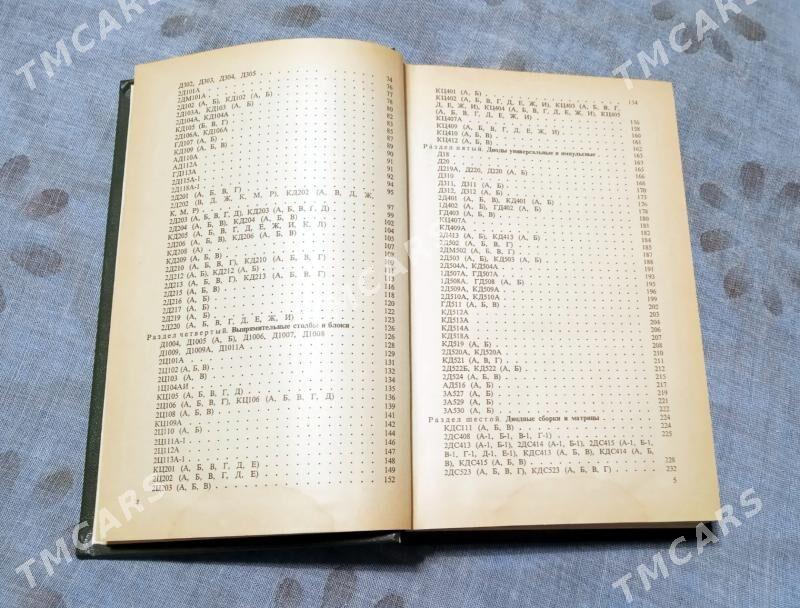 Д302, Д303, Д304, Д305 74
2Д101А 76
2ДМ101А 77
2Д102 (А, Б), КД102 (А, Б) 78
2Д103А, КД103 (А, Б) 80
2Д104А, КД104А 82
КД105 (Б, В, Г) 83
2Д106А, КД106А 85
ГД107 (А, Б) 87
КД109 (А, Б, В)
АД110А
АД112А
ГД113А
2Д115А-1
2Д118А-1
2Д201 (А, Б, В, Г) 95
2Д202 (В, Д, Ж, К, М, Р), КД202 (А, В, Д, Ж,
К, М, Р) 97
2Д203 (А, Б, В, Г, Д), КД203 (А, Б, В, Г, Д)
2Д204 (А, Б, В), КД204 (А, Б, В) 102
КД205 (А, Б, В, Г, Д, Е, Ж, И, К, Л) 104
2Д206 (А, Б, В), КД206 (А, Б, В)
КД208 (А)
КД209 (А, Б, В)
2Д210 (А, Б, В, Г), КД210 (А, Б, В, Г)
2Д212 (А, Б), КД212 (А, Б)
2Д213 (А, Б, В, Г), КД213 (А, Б, В, Г)
2Д215 (А, Б, В)
2Д216 (А, Б) 118
2Д217 (А, Б) 120
2Д219 (А, Б) 122
2Д220 (А, Б, В, Г, Д, Е, Ж, И) 123
Раздел четвертый. Выпрямительные столбы и блоки 126
Д1004, Д1005 (А, Б), Д1006, Д1007, Д1008 126
Д1009, Д1009А, Д1011А 128
2Ц101А 129
2Ц102 (А, Б, В) 131
2Ц103 (А, Б) 132
1Ц104АИ 134
КЦ105 (А, Б, В, Г, Д) 135
2Ц106 (А, Б, В, Г), КЦ106 (А, Б, В, Г, Д) 136
2Ц108 (А, Б, В) 139
КЦ109А 141
2Ц110 (А, Б) 142
2Ц111А-1 144
2Ц112А 146
2Ц113А-1 147
КЦ201 (А, Б, В, Г, Д, Е) 148
2Ц202 (А, Б, В, Г, Д, Е) 149
2Ц203 (А, Б, В) 152
КЦ401 (А, Б) 154
КЦ402 (А, Б, В, Г, Д, Е, Ж, И), КЦ403 (А, Б, В, Г,
Д, Е, Ж, И), КЦ404 (А, Б, В, Г, Д, Е, Ж, И), КЦ405
(А, Б, В, Г, Д, Е, Ж, И) 156
КЦ407А 158
КЦ409 (А, Б, В, Г, Д, Е, Ж, И) 160
КЦ410 (А, Б, В) 161
КЦ412 (А, Б, В) 162
Раздел пятый. Диоды универсальные и импульсные 163
Д18 163
Д20 165
Д219А, Д220, Д220 (А, Б) 166
Д310 168
Д311, Д311 (А, Б) 170
Д312, Д312 (А, Б) 173
2Д401 (А, Б, В), КД401 (А, Б) 175
1Д402 (А, Б), ГД402 (А, Б) 176
ГД403 (А, Б, В) 178
ГД407А 180
КД409А 181
2Д413 (А, Б), КД413 (А, Б) 182
2Д502 (А, Б, В, Г) 184
2ДМ502 (А, Б, В, Г) 185
2Д503 (А, Б), КД503 (А, Б) 187
2Д504А, КД504А 188
1Д507А, ГД507А 191
1Д508А, ГД508 (А, Б) 193
2Д509А, КД509А 195
2Д510А, КД510А 196
ГД511 (А, Б, В) 199
КД512А 202
КД513А 203
КД514А 204
КД518А 206
КД519 (А, Б) 207
2Д520А, КД520А 208
КД521 (А, В, Г) 210
2Д522Б, КД522 (А, Б) 211
2Д524 (А, Б, В) 215
АД516 (А, Б) 217
3А527 (А, Б) 219
3А529 (А, Б) 221
3А530 (А, Б) 222
Раздел шестой. Диодные сборки и матрицы 224
КДС111 (А, Б, В) 224
2ДС408 (А-1, Б-1, В-1, Г-1) 225
2ДС413 (А-1, Б-1), 2ДС414 (А-1, Б-1), 2ДС415 (А-1, Б-1,
В-1, Г-1, Д-1, Е-1), КДС413 (А, Б, В), КДС414 (А, Б,
В), КДС415 (А, Б, В) 228
2ДС523 (А, Б, В, Г), КДС523 (А, Б, В, Г) 232
5
TMCARS
TMCARS
TMCARS
TMCARS
TMCARS